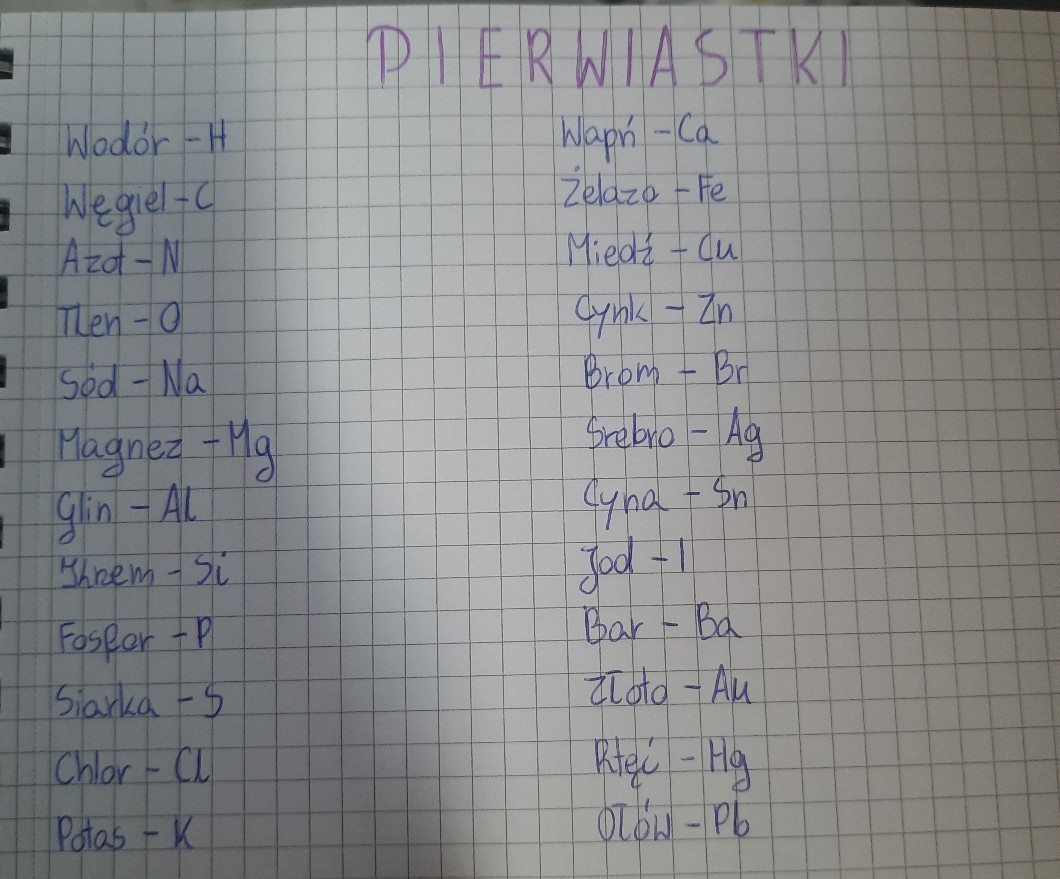 PIERWIASTKI
Wodór - H
Węgiel - C
Azot - N
Tlen - O
Sód - Na
Magnez - Mg
Glin - Al
Khzem - Si
Fosfor - P
Siarka - S
Chlor - Cl
Potas - K
Wapń - Ca
Żelazo - Fe
Miedź - Cu
Cynk - Zn
Brom - Br
Srebro - Ag
Cyna - Sn
Jod - I
Bar - Ba
Złoto - Au
Rtęć - Hg
Ołów - Pb